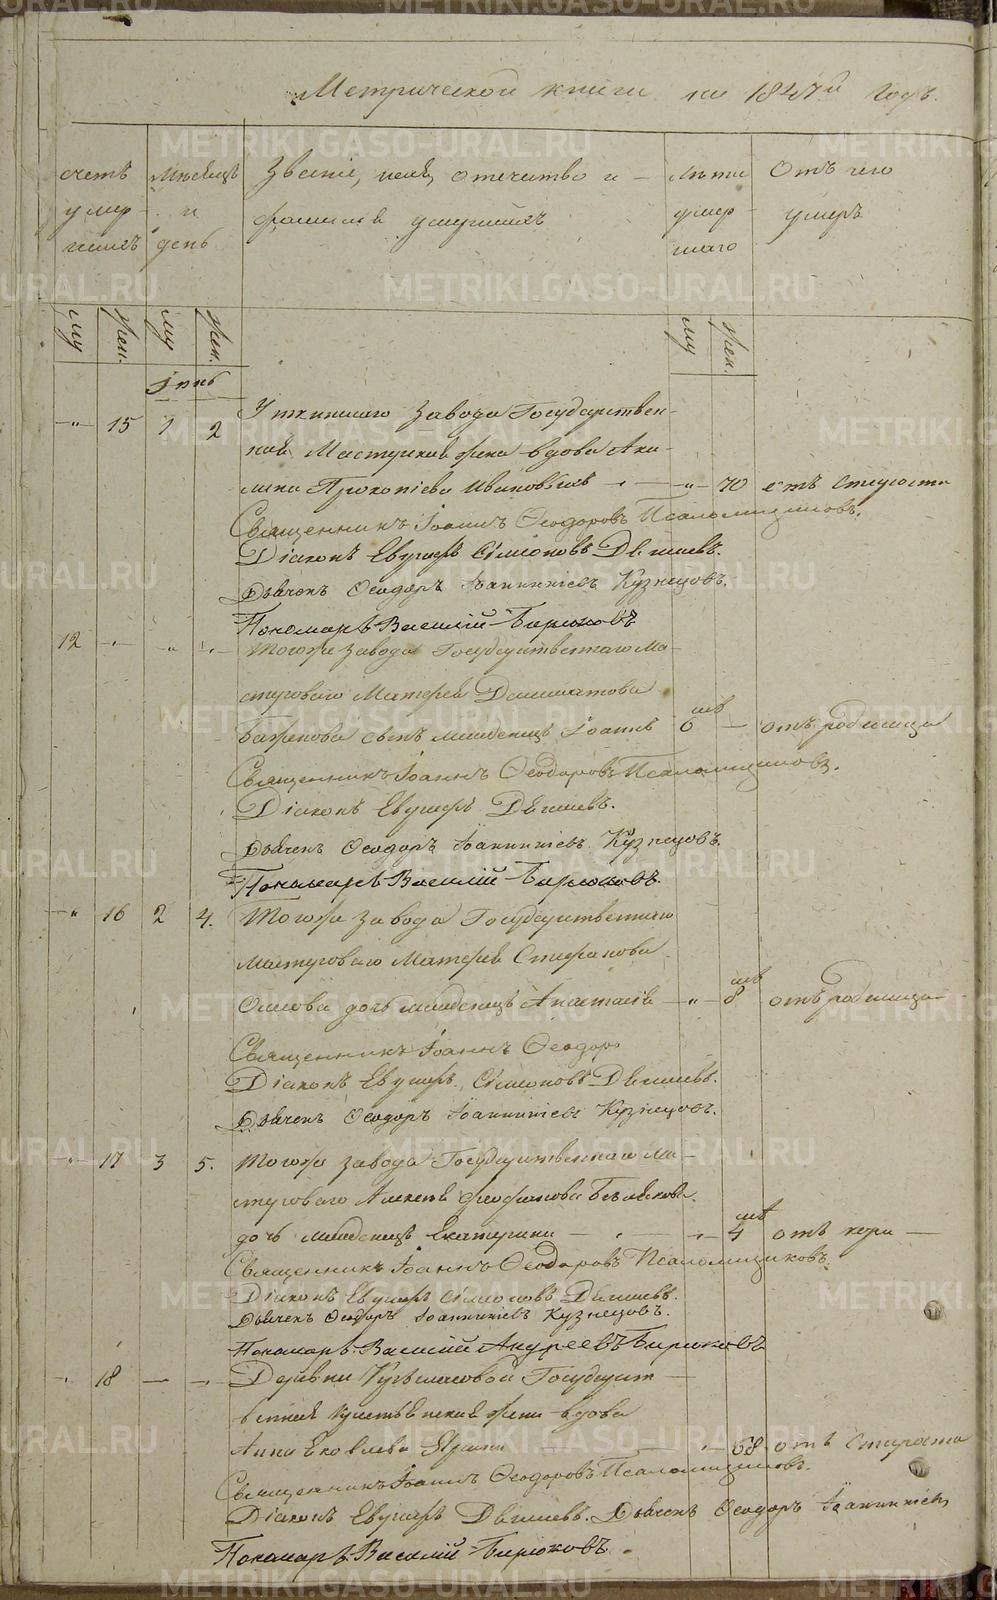 METRIKI.GASO-URAL.RU
Метрической книги на 1847й годъ.
Счетъ умер- шихъ
Мѣсяцъ и день
Званіе, имя, отечество и фамилія умершихъ
Лѣта умер- шаго
Отъ чего умеръ
Му Жен. Му Жен. Му Жен.
Іюнь
15 1 2 Уткинскаго завода Государствен-
ной Мастерской жена вдова Аку-
лина Прокопіева Ивановская 70 отъ старости
Священникъ Іоаннъ Ѳеодоровъ Псаломщиковъ.
Діаконъ Евгмеръ Симоновъ Двинѣвъ.
Дьячекъ Ѳеодоръ Іоанникіевъ Кузнецовъ.
Пономарь Василій Бирюковъ
12 Тогоже завода Государственнаго Ма-
стероваго Матфея
Баженова сынъ младенецъ Іоаннъ 6 отъ родимца
Священникъ Іоаннъ Ѳеодоровъ Псаломщиковъ.
Діаконъ Двинѣвъ.
Дьячекъ Ѳеодоръ Іоанникіевъ Кузнецовъ.
Пономарь Василій Бирюковъ.
16 2 4. Тогоже завода Государственнаго
мастероваго Матфея Стефанова
дочь младенецъ Анастасія 8 отъ родимца
Священникъ Іоаннъ Ѳеодоро
Діаконъ Симоновъ Двинѣвъ.
Дьячекъ Ѳеодоръ Іоанникіевъ Кузнецовъ.
17 3 5. Тогоже завода Государственнаго Ма-
стероваго Алексѣя
дочь младенецъ Екатерина 4 отъ кори
Священникъ Іоаннъ Ѳеодоровъ Псаломщиковъ.
Діаконъ Симоновъ Двинѣвъ.
Дьячекъ Ѳеодоръ Іоанникіевъ Кузнецовъ.
Пономарь Василій Андреевъ Бирюковъ
18 Деревни Государст-
венная крестьянская жена вдова
Анна Яковлева 68 отъ старости
Священникъ Іоаннъ Ѳеодоровъ Псаломщиковъ.
Діаконъ Двинѣвъ. Дьячекъ Ѳеодоръ Іоанникіевъ
Пономарь Василій Бирюковъ.